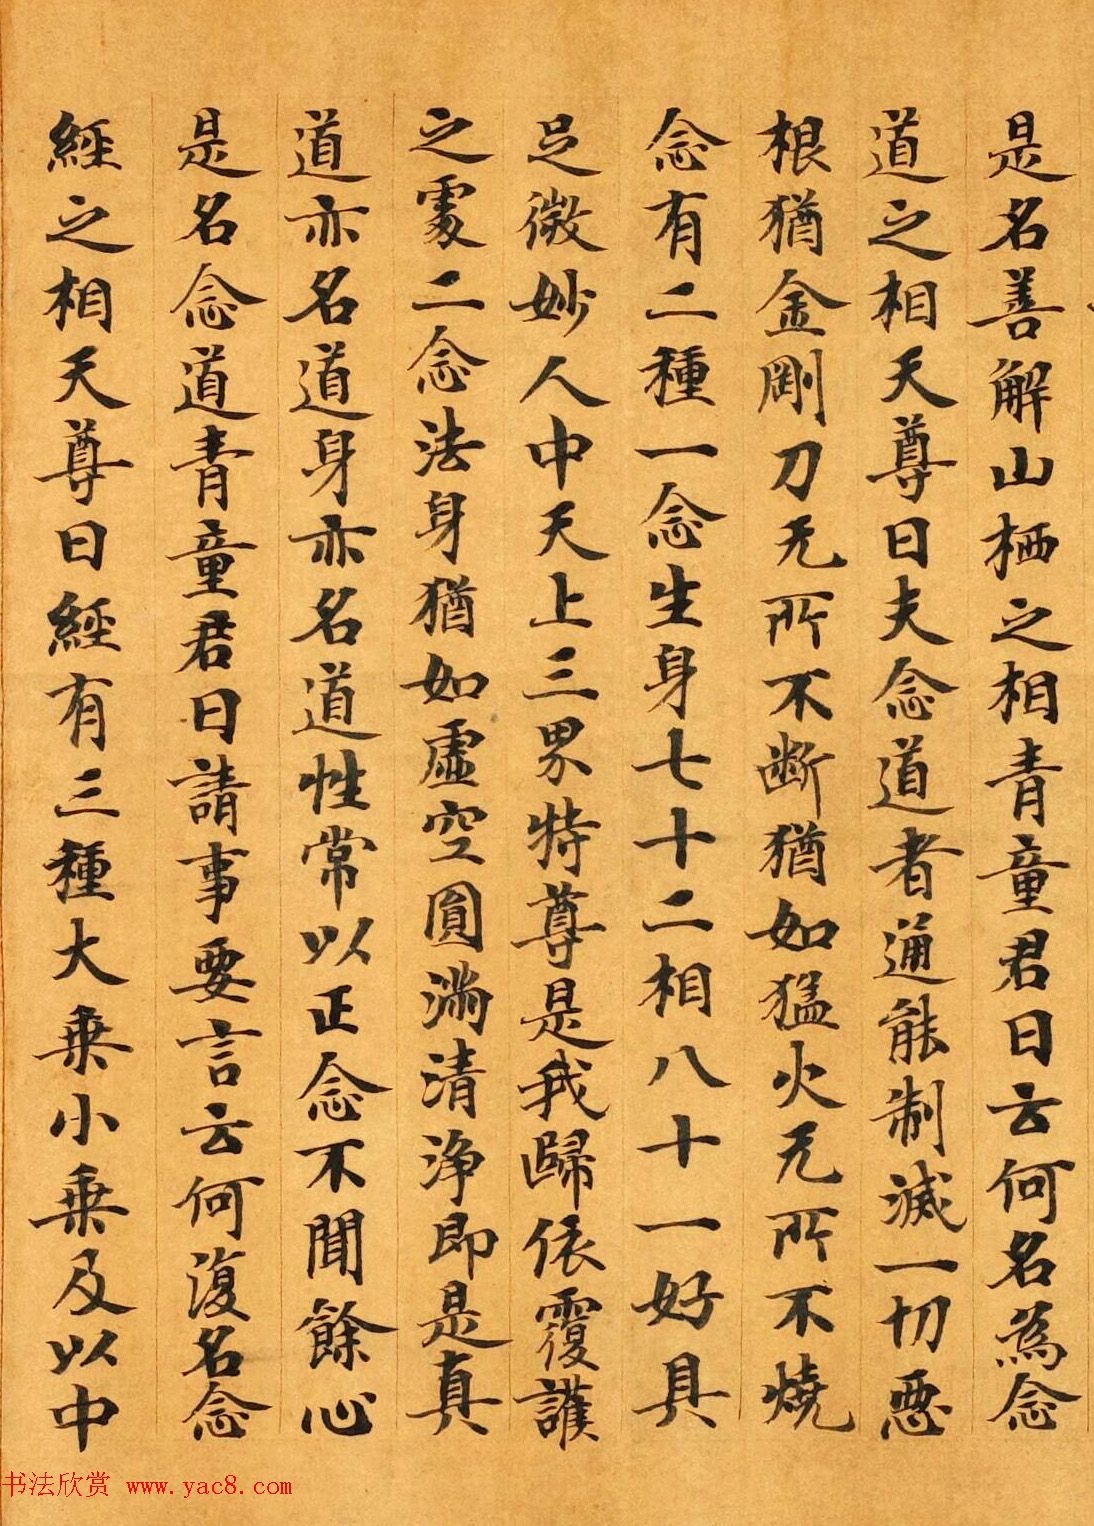 是名善解山栖之相青童君曰云何名為念
道之相天尊曰夫念道者通能制滅一切惡
根猶金剛刀无所不斷猶如猛火无所不燒
念有二種一念生身七十二相八十一好具
足微妙人中天上三界特尊是我歸依覆護
之處二念法身猶如虛空圓滿清淨即是真
道亦名道身亦名道性常以正念不聞餘心
是名念道青童君曰請事要言云何復名念
經之相天尊曰經有三種大乘小乘及以中
书法欣赏 www.yac8.com